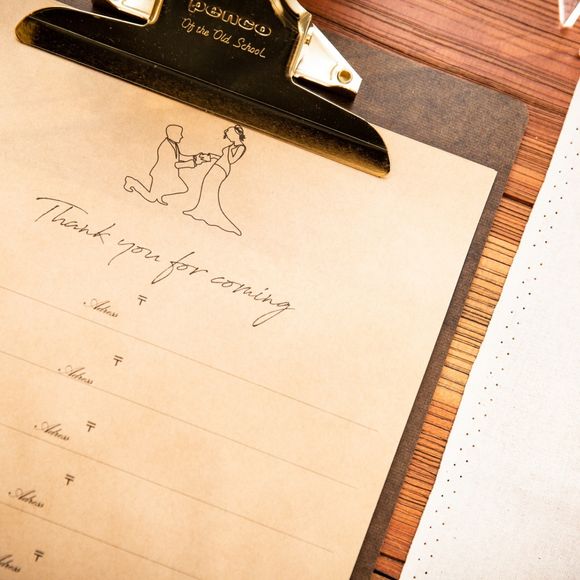 penco
Of the Old School
Thank you for coming
Adress 〒
Adress 〒
Adress 〒
Adress 〒
Adress 〒